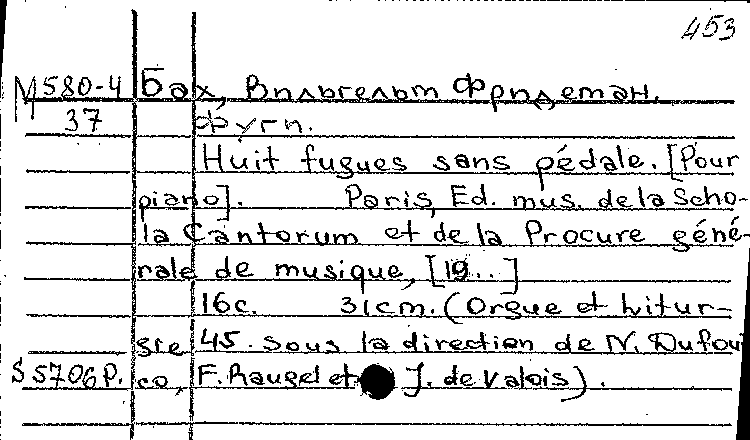 453
М580-4 Бах, Вильгельм Фридеман.
37 Фуги.
Huit fugues sans pédale. [Pour
piano]. Paris, Ed. mus. de la Scho-
la Cantorum et de la Procure géné-
rale de musique, [19..]
16c. 31cm. (Orgue et Litur-
gie 45. Sous la direction de N. Dufou
S 5706 P. co, F. Raugel et J. de Valois).